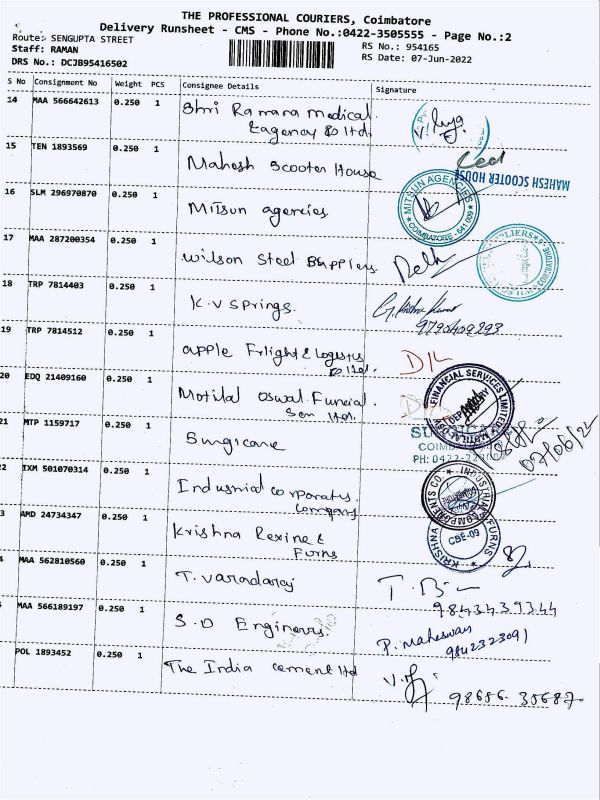 THE PROFESSIONAL COURIERS, Coimbatore
Delivery Runsheet - CMS - Phone No.:0422-3505555 - Page No.:2
Route: SENGUPTA STREET
Staff: RAMAN
DRS No.: DCJB95416502
RS No.: 954165
RS Date: 07-Jun-2022
S No Consignment No Weight PCS Consignee Details Signature
14 MAA 566642613 0.250 1 Shri Ramana medical
& agency P ltd.
15 TEN 1893569 0.250 1 Mahesh Scooter House
MAHESH SCOOTER HOUSE
16 SLM 296970870 0.250 1 Mitsun agencies
MITSUN AGENCIES
COIMBATORE - 641 009
17 MAA 287200354 0.250 1 Wilson Steel Suppliers
18 TRP 7814403 0.250 1 K.V Springs.
9790409293
19 TRP 7814512 0.250 1 apple Frlight & Logistics
P ltd. D/L
20 EDQ 21409160 0.250 1 Motilal Oswal Funcial.
Serv ltd.
FINANCIAL SERVICES LIMITED
21 MTP 1159717 0.250 1 Surgicare
PH: 0422-22
07/06/22
2 IXM 501070314 0.250 1 Industrial corporates
company
INDUSTRIAL COMPONENTS CO
3 AMD 24734347 0.250 1 Krishna Rexine &
Furns
KRISHNA FURNS
CBE-09
4 MAA 562810560 0.250 1 T. Varadaraj
9843439344
5 MAA 566189197 0.250 1 S.D Engineers.
P. Maheswari
9842323091
POL 1893452 0.250 1 The India cement ltd
98656-35687